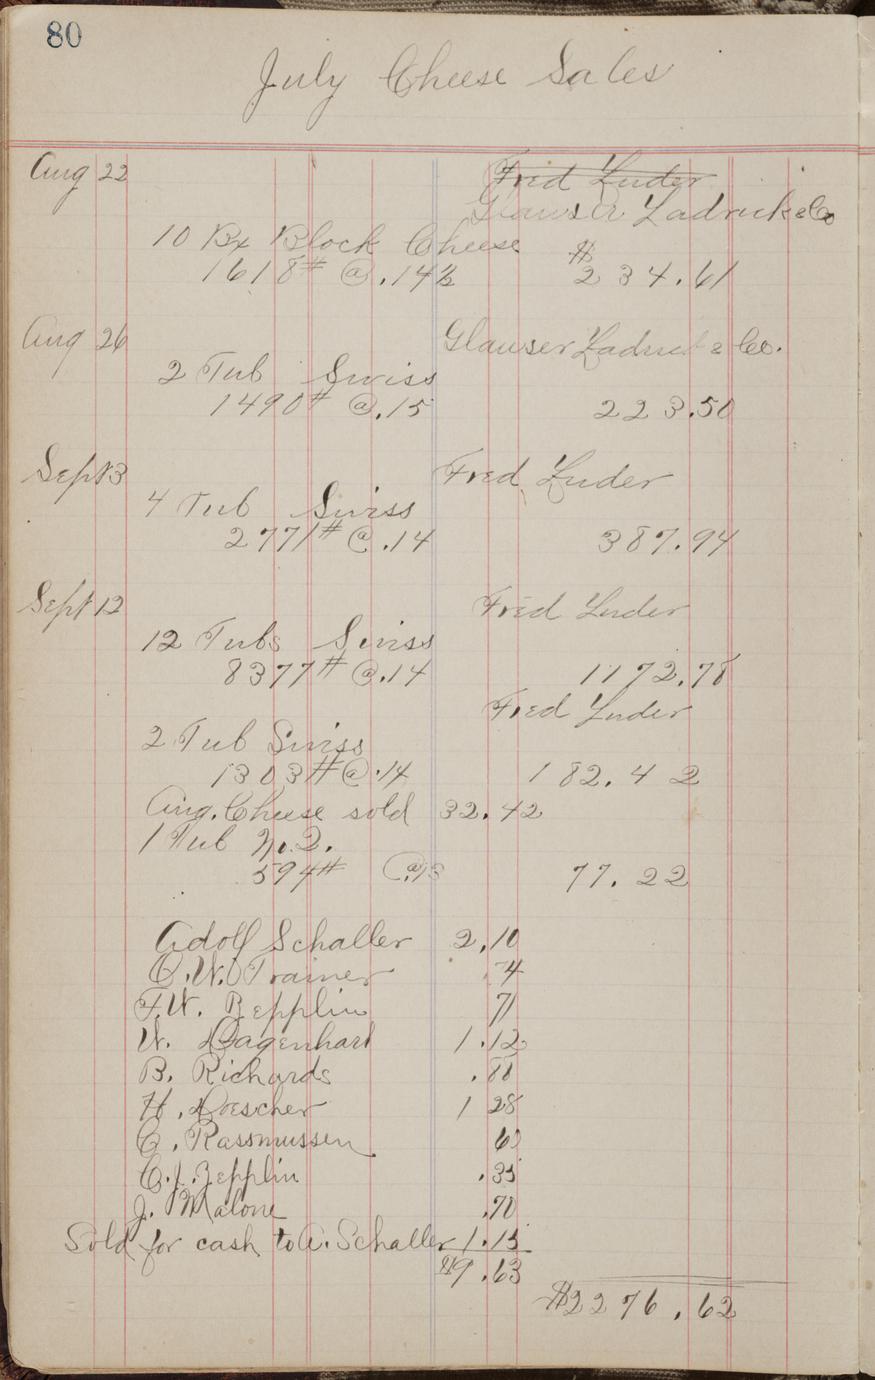 80
July Cheese Sales
Aug 22 Fred Luder
Glauser Ladrick & Co
10 Bx Block Cheese
1618# @ .14½ $234.61
Aug 26 Glauser Ladrick & Co.
2 Tub Swiss
1490# @ .15 223.50
Sept 3 Fred Luder
4 Tub Swiss
2771# @ .14 387.94
Sept 12 Fred Luder
12 Tubs Swiss
8377# @ .14 1172.78
Fred Luder
2 Tub Swiss
1303# @ .14 182.42
Aug. Cheese sold 32.42
1 Tub No. 2.
594# @ 13 77.22
Adolf Schaller 2.10
C. W. Trainer .74
F. W. Zepplin 71
W. Dagenhart 1.12
B. Richards .88
H. Loescher 1 28
C. Rassmussen 60
C. J. Zepplin .35
J. Malone .70
Sold for cash to A. Schaller 1.15
$9.63
$2276.62